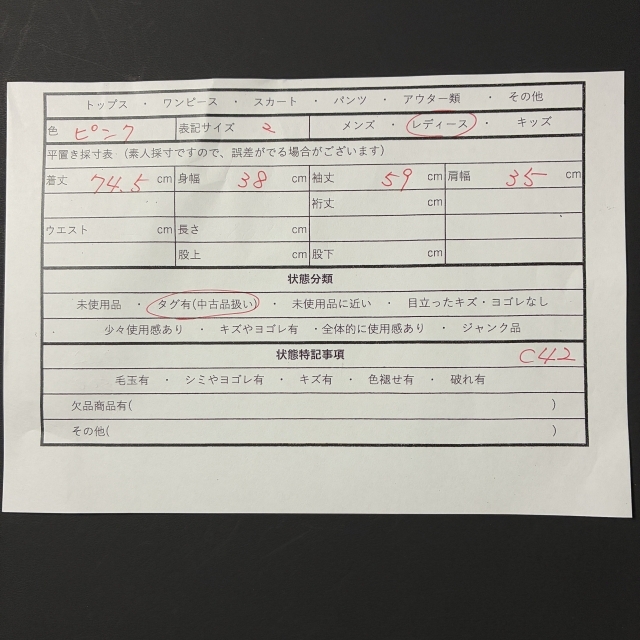 トップス ・ ワンピース ・ スカート ・ パンツ ・ アウター類 ・ その他
色 ピンク 表記サイズ 2 メンズ ・ レディース ・ キッズ
平置き採寸表 (素人採寸ですので、誤差がでる場合がございます)
着丈 74.5 cm 身幅 38 cm 袖丈 59 cm 肩幅 35 cm
裄丈 cm
ウエスト cm 長さ cm
股上 cm 股下 cm
状態分類
未使用品 ・ タグ有(中古品扱い) ・ 未使用品に近い ・ 目立ったキズ・ヨゴレなし
少々使用感あり ・ キズやヨゴレ有 ・全体的に使用感あり ・ ジャンク品
状態特記事項 C42
毛玉有 ・ シミやヨゴレ有 ・ キズ有 ・ 色褪せ有 ・ 破れ有
欠品商品有( )
その他( )